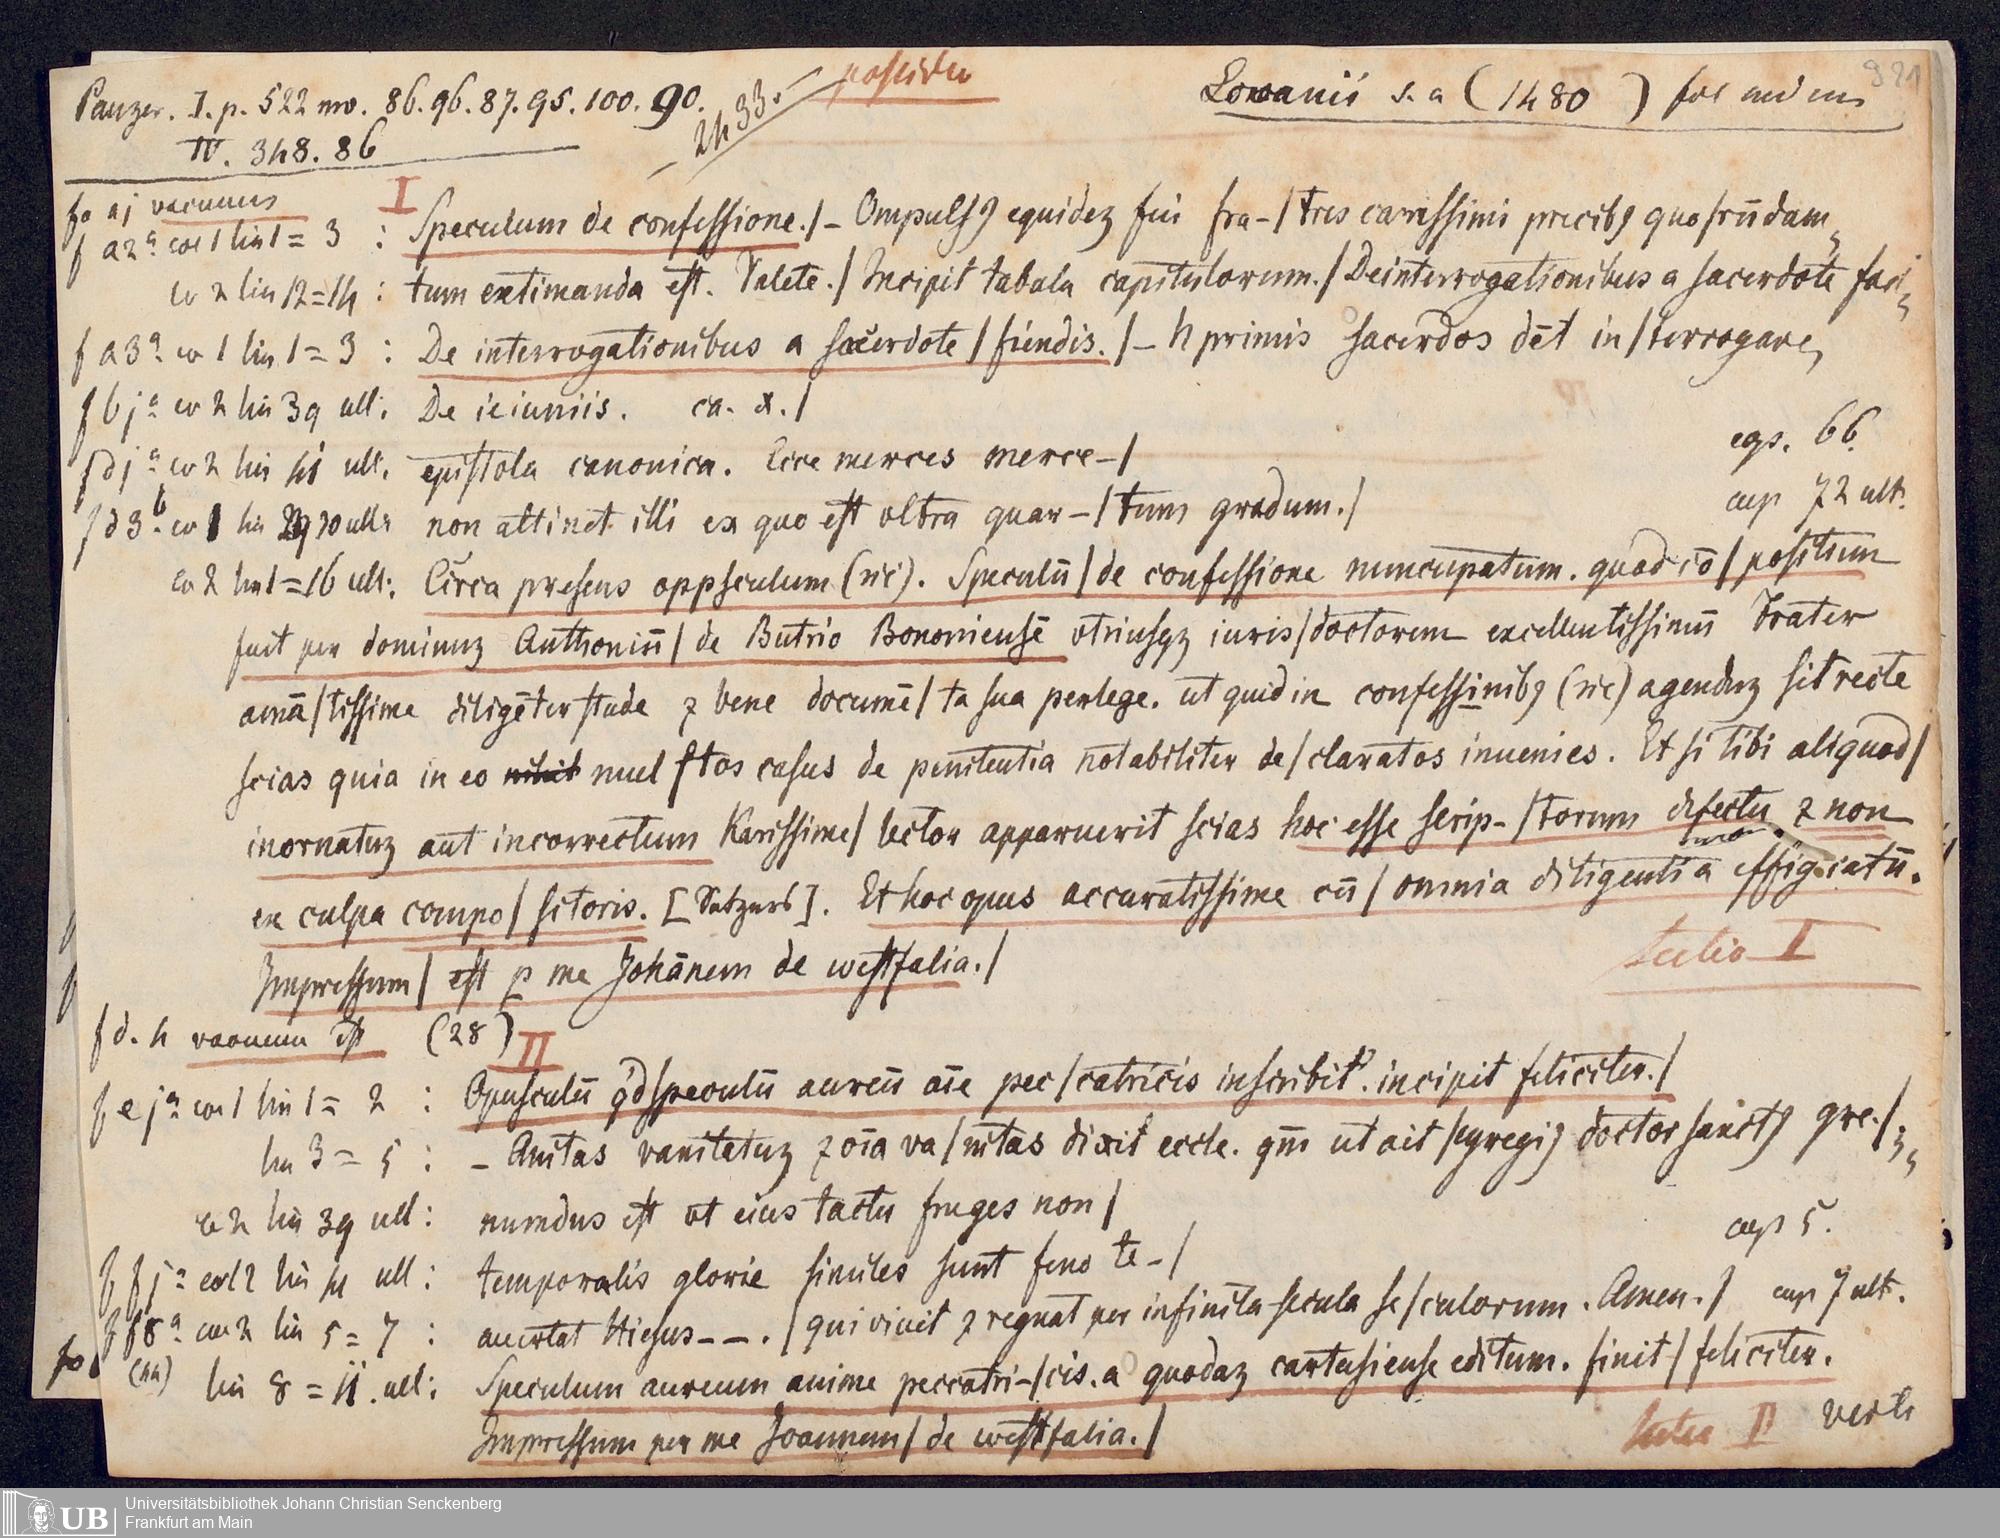 Panzer. I. p. 522 no. 86. 96. 87. 95. 100. 90.
IV. 348. 86
2433.
Lovanii s. a (1480) fol
f a j vacuum
I
f a2ª col 1 lin 1 = 3 : Speculum de confessione. / - Ompulsꝯ equidez fui fra- / tres carissimi precibꝯ quorūdam
co 2 lin 12 = 14 : tum extimanda est. Valete. / Incipit tabula capitulorum. / De interrogationibus a sacerdote
f a3ª co 1 lin 1 = 3 : De interrogationibus a sacerdote / fiendis. / - primis sacerdos dēt in / terrogare
f b jª co 2 lin 39 ult: De ieiuniis. ca. x. /
f d jª co 2 lin 41 ult. epistola canonica. Ecce merces merce- / cap. 66
f d 3b co 1 lin ult. non attinet illi ex quo est vltra quar- / tum gradum. / cap 72 ult.
co 2 lin 1 = 16 ult: Circa presens oppsculum (sic). Speculū / de confessione nuncupatum. quod cō / positum
fuit per dominuz Anthoniū / de Butrio Bononiensē vtriusqz iuris / doctorem excellentissimū Frater
amā / tissime diligēter stude ⁊ bene documē / ta sua perlege. ut quid in confessinibꝯ (sic) agenduz sit recte
scias quia in eo mul / tos casus de penitentia notabiliter de / claratos inuenies. Et si tibi aliquod /
inornatuz aut incorrectum Karissime / lector apparuerit scias hoc esse scrip- / torum defectu ⁊ non
ex culpa compo / sitoris. [ ]. Et hoc opus accuratissime cū / omnia diligentia effigiatū.
Impressum / est p me Johānem de westfalia. /
I
f d. 4 vacuum est (28)
II
f e jª col 1 lin 1 = 2 : Opusculū qd speculū aureū aīe pec / catricis inscribit. incipit feliciter. /
lin 3 = 5 : - Anitas vanitatuz ⁊ oīa va / nitas dixit eccle. qm ut ait / egregiꝯ doctor sanctꝯ gre. /
co 2 lin 39 ult : mundus est vt eius tactu fruges non / cap 5.
f f jª col 2 lin 41 ult : temporalis glorie similes sunt feno te- /
f f8ª col 2 lin 5 = 7 : auertat Hiesus - - . / qui viuit ⁊ regnat per infinita secula se / culorum. Amen. / cap 7 ult.
(44) lin 8 = 11. ult: Speculum aureum anime peccatri- / cis. a quodaz cartusiense editum. finit / feliciter.
Impressum per me Joannem / de westfalia. /
II
verte
Universitätsbibliothek Johann Christian Senckenberg
Frankfurt am Main
UB